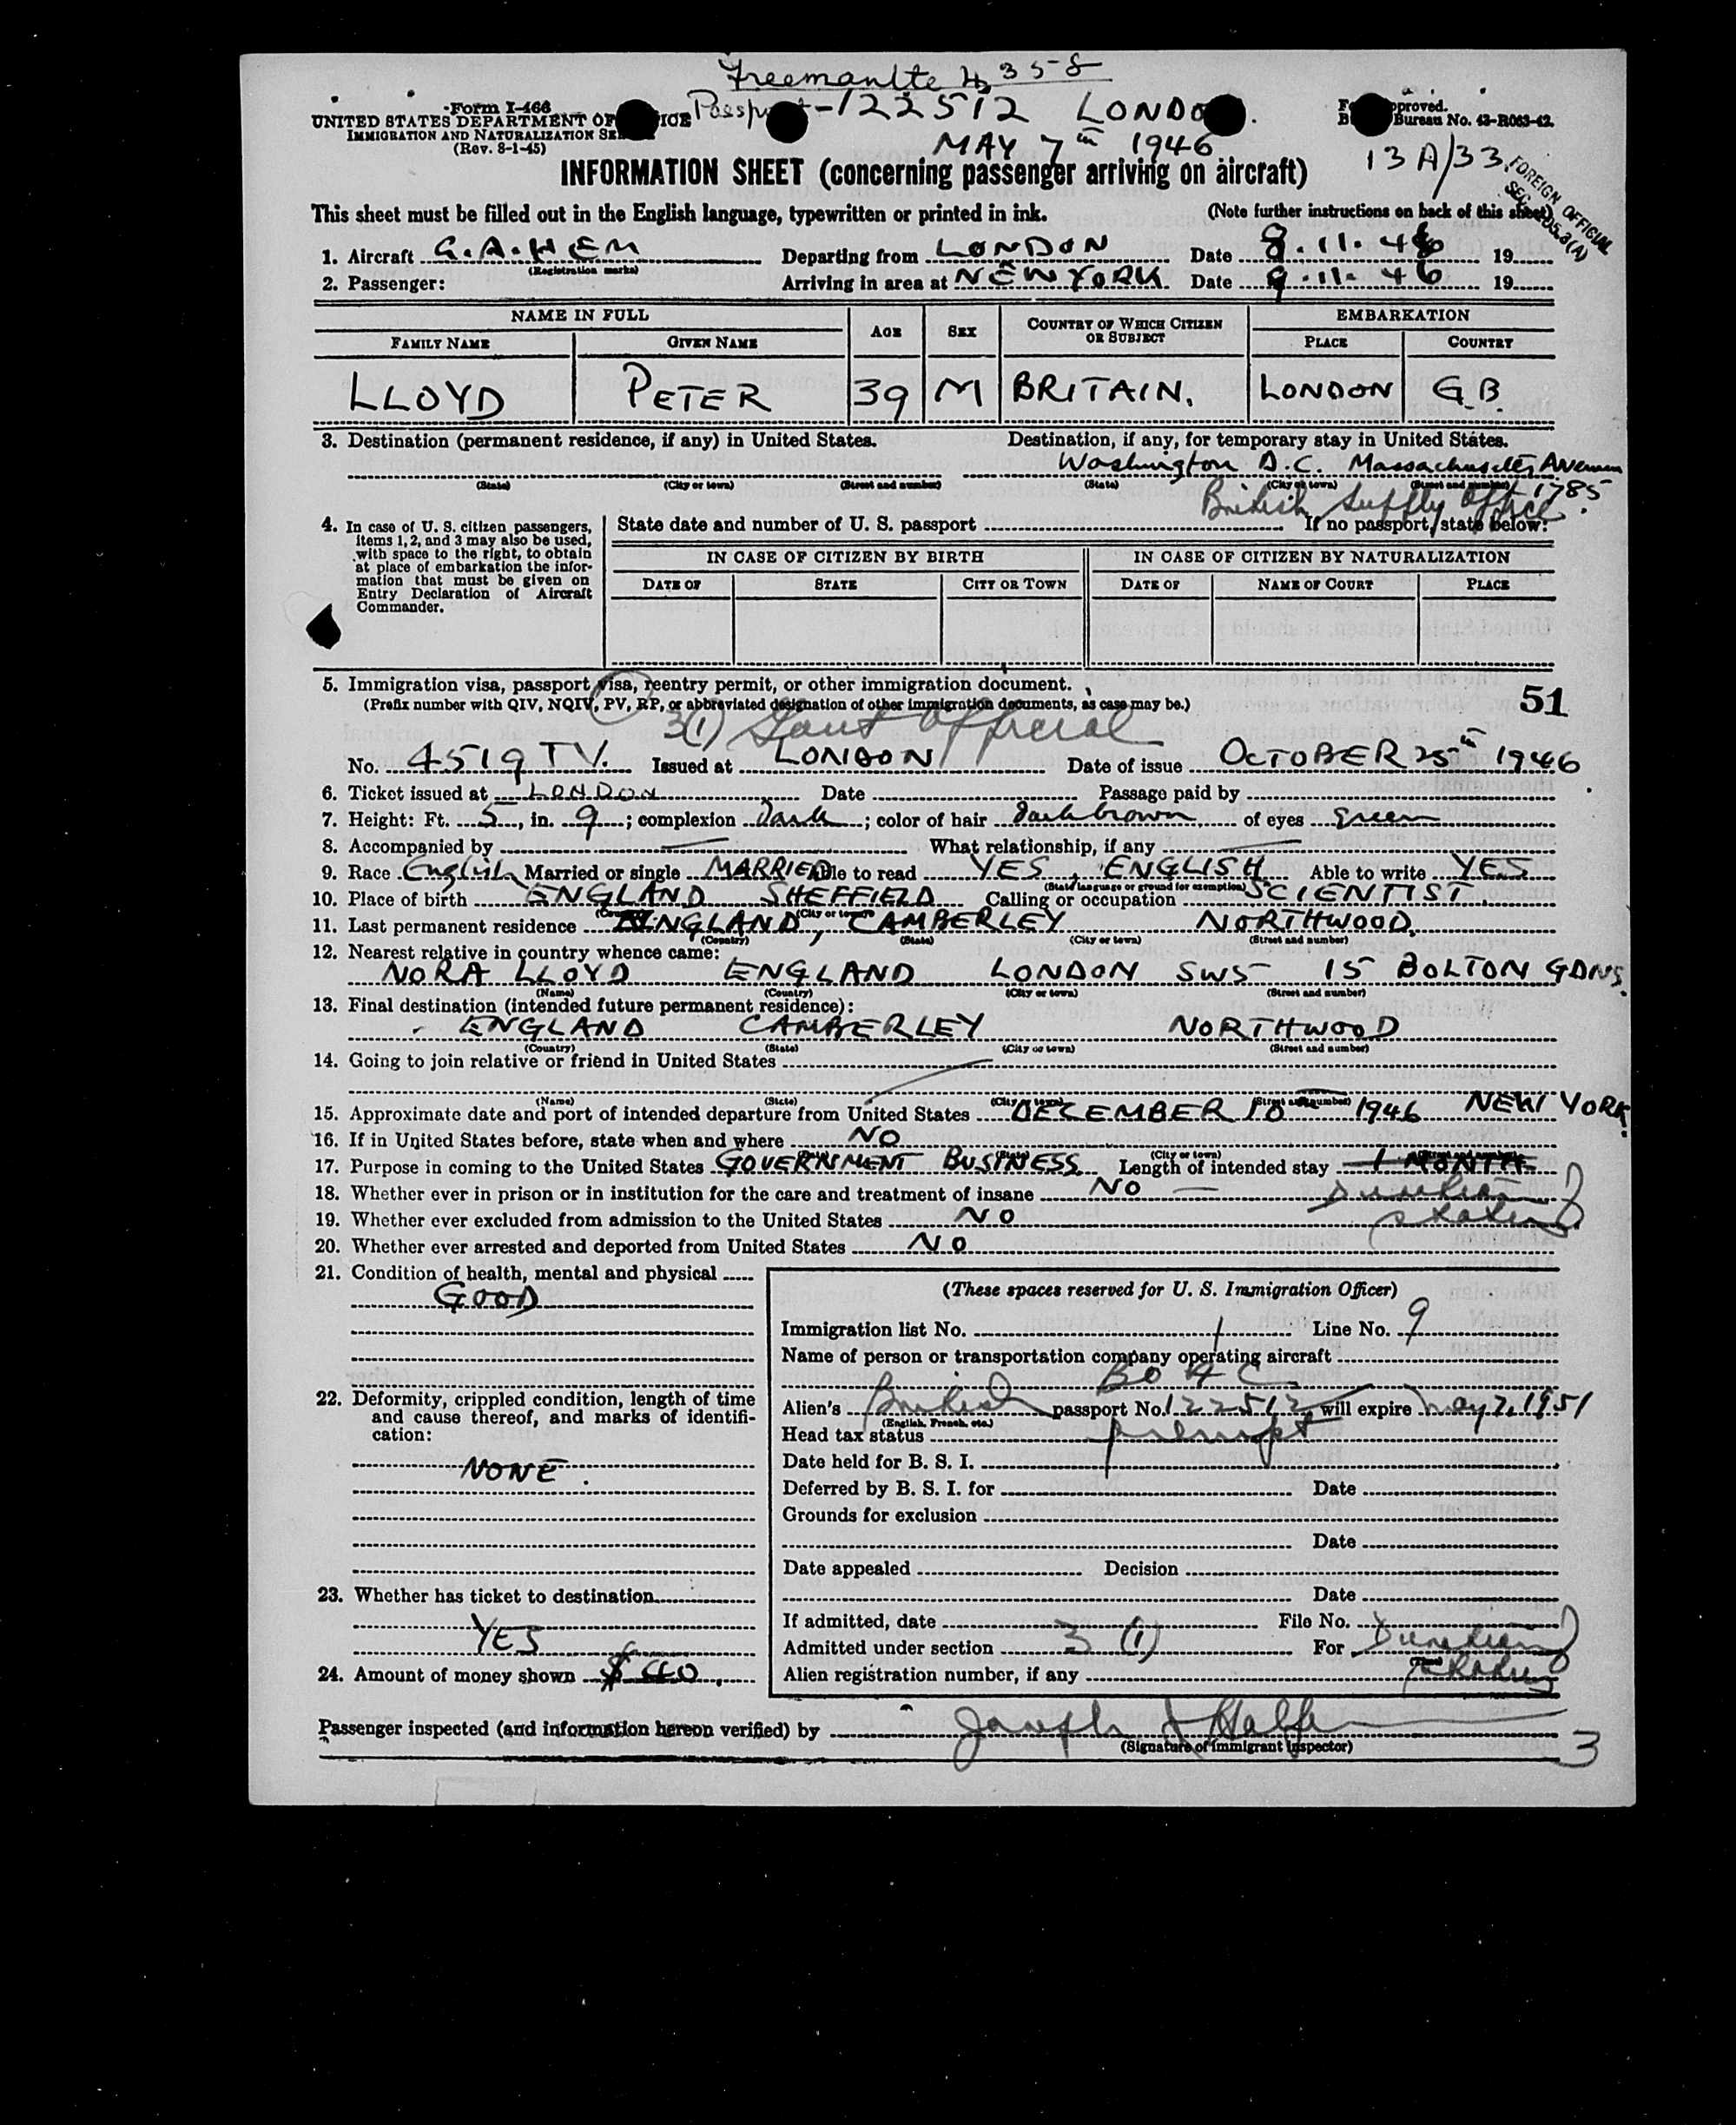 Freemantle 4358
Form I-466
UNITED STATES DEPARTMENT OF
IMMIGRATION AND NATURALIZATION
(Rev. 8-1-45)
Passport-122512 LONDON.
MAY 7th 1946
Approved.
Bureau No. 43-R063-42.
13A/33
FOREIGN OFFICIAL
INFORMATION SHEET (concerning passenger arriving on aircraft)
This sheet must be filled out in the English language, typewritten or printed in ink. (Note further instructions on back of this sheet)
1. Aircraft G.A.HEM Departing from LONDON Date 8.11.46 19
(Registration marks)
2. Passenger: Arriving in area at NEW YORK Date 9.11.46 19
NAME IN FULL AGE SEX COUNTRY OF WHICH CITIZEN OR SUBJECT EMBARKATION
FAMILY NAME GIVEN NAME PLACE COUNTRY
LLOYD PETER 39 M BRITAIN. LONDON G.B.
3. Destination (permanent residence, if any) in United States. Destination, if any, for temporary stay in United States.
Washington D.C. Massachusetts Avenue
(State) (City or town) (Street and number) (State) (City or town) (Street and number) 1785
British Supply Office
4. In case of U. S. citizen passengers, items 1, 2, and 3 may also be used, with space to the right, to obtain at place of embarkation the information that must be given on Entry Declaration of Aircraft Commander.
State date and number of U. S. passport If no passport, state below:
IN CASE OF CITIZEN BY BIRTH IN CASE OF CITIZEN BY NATURALIZATION
DATE OF STATE CITY OR TOWN DATE OF NAME OF COURT PLACE
5. Immigration visa, passport visa, reentry permit, or other immigration document.
(Prefix number with QIV, NQIV, PV, RP, or abbreviated designation of other immigration documents, as case may be.)
51
3(1) Govt Official
No. 4519 TV. Issued at LONDON Date of issue OCTOBER 25th 1946
6. Ticket issued at LONDON Date Passage paid by
7. Height: Ft. 5, in. 9; complexion Dark; color of hair Dark brown, of eyes green
8. Accompanied by What relationship, if any
9. Race English Married or single MARRIED Able to read YES, ENGLISH Able to write YES
(State language or ground for exemption)
10. Place of birth ENGLAND SHEFFIELD Calling or occupation SCIENTIST.
(Country) (City or town)
11. Last permanent residence ENGLAND, CAMBERLEY NORTHWOOD.
(Country) (State) (City or town) (Street and number)
12. Nearest relative in country whence came:
NORA LLOYD ENGLAND LONDON SW5 15 BOLTON GDNS.
(Name) (Country) (City or town) (Street and number)
13. Final destination (intended future permanent residence):
ENGLAND CAMBERLEY NORTHWOOD
(Country) (State) (City or town) (Street and number)
14. Going to join relative or friend in United States
(Name) (State) (City or town) (Street and number)
15. Approximate date and port of intended departure from United States DECEMBER 10 1946 NEW YORK.
16. If in United States before, state when and where NO
(State) (City or town) (Street and number)
17. Purpose in coming to the United States GOVERNMENT BUSINESS Length of intended stay 1 MONTH
18. Whether ever in prison or in institution for the care and treatment of insane NO Duration of
19. Whether ever excluded from admission to the United States NO status
20. Whether ever arrested and deported from United States NO
21. Condition of health, mental and physical
GOOD
22. Deformity, crippled condition, length of time and cause thereof, and marks of identification:
NONE.
23. Whether has ticket to destination
YES
24. Amount of money shown $40
(These spaces reserved for U. S. Immigration Officer)
Immigration list No. 1 Line No. 9
Name of person or transportation company operating aircraft
BOAC
Alien's British passport No. 122512 will expire May 7, 1951
(English, French, etc.)
Head tax status exempt
Date held for B. S. I.
Deferred by B. S. I. for Date
Grounds for exclusion
Date
Date appealed Decision
Date
If admitted, date File No.
Admitted under section 3 (1) For Duration of
(Time)
Alien registration number, if any status
Passenger inspected (and information hereon verified) by Joseph J Halfen
(Signature of immigrant inspector)
3